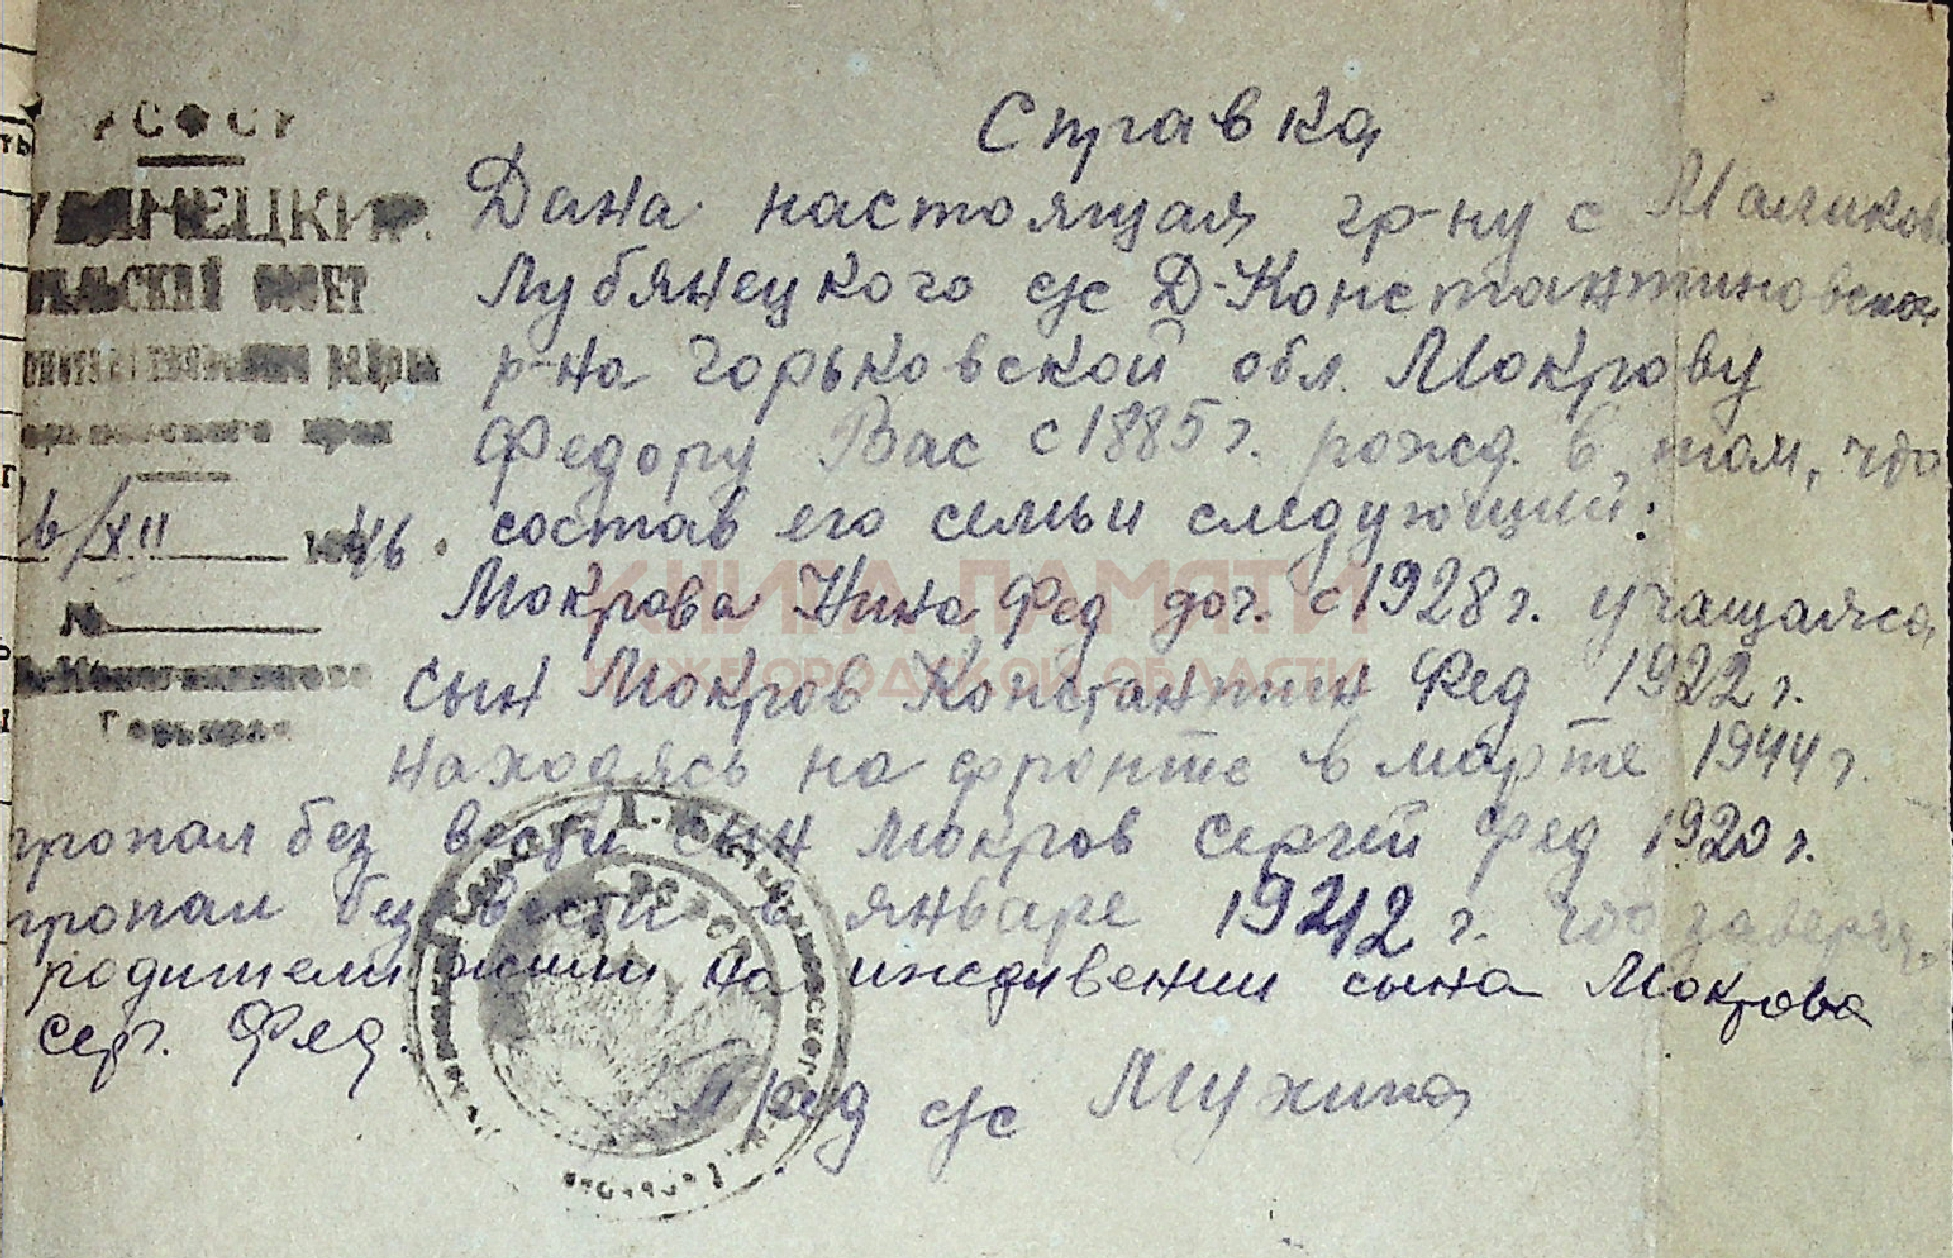 РСФСР
ЛУБЯНЕЦКИЙ
СЕЛЬСКИЙ СОВЕТ
района
Горьковского края
6/XII 1946.
№
Д-Константиново
Горьков
Справка
Дана настоящая гр-ну с Маликов
Лубянецкого с/с Д-Константиновског
р-на Горьковской обл. Мокрову
Федору Вас с 1885 г. рожд. в том, что
состав его семьи следующий:
Мокрова Нина Фед доч. с 1928 г. учащаяся
сын Мокров Константин Фед 1922 г.
находясь на фронте в марте 1944 г.
пропал без вести сын Мокров Сергей Фед 1920 г.
пропал без вести в январе 1942 г. что заверяе
родители жили на иждивении сына Мокрова
Сер. Фед.
Пред с/с Мухина
КНИГА ПАМЯТИ
НИЖЕГОРОДСКОЙ ОБЛАСТИ